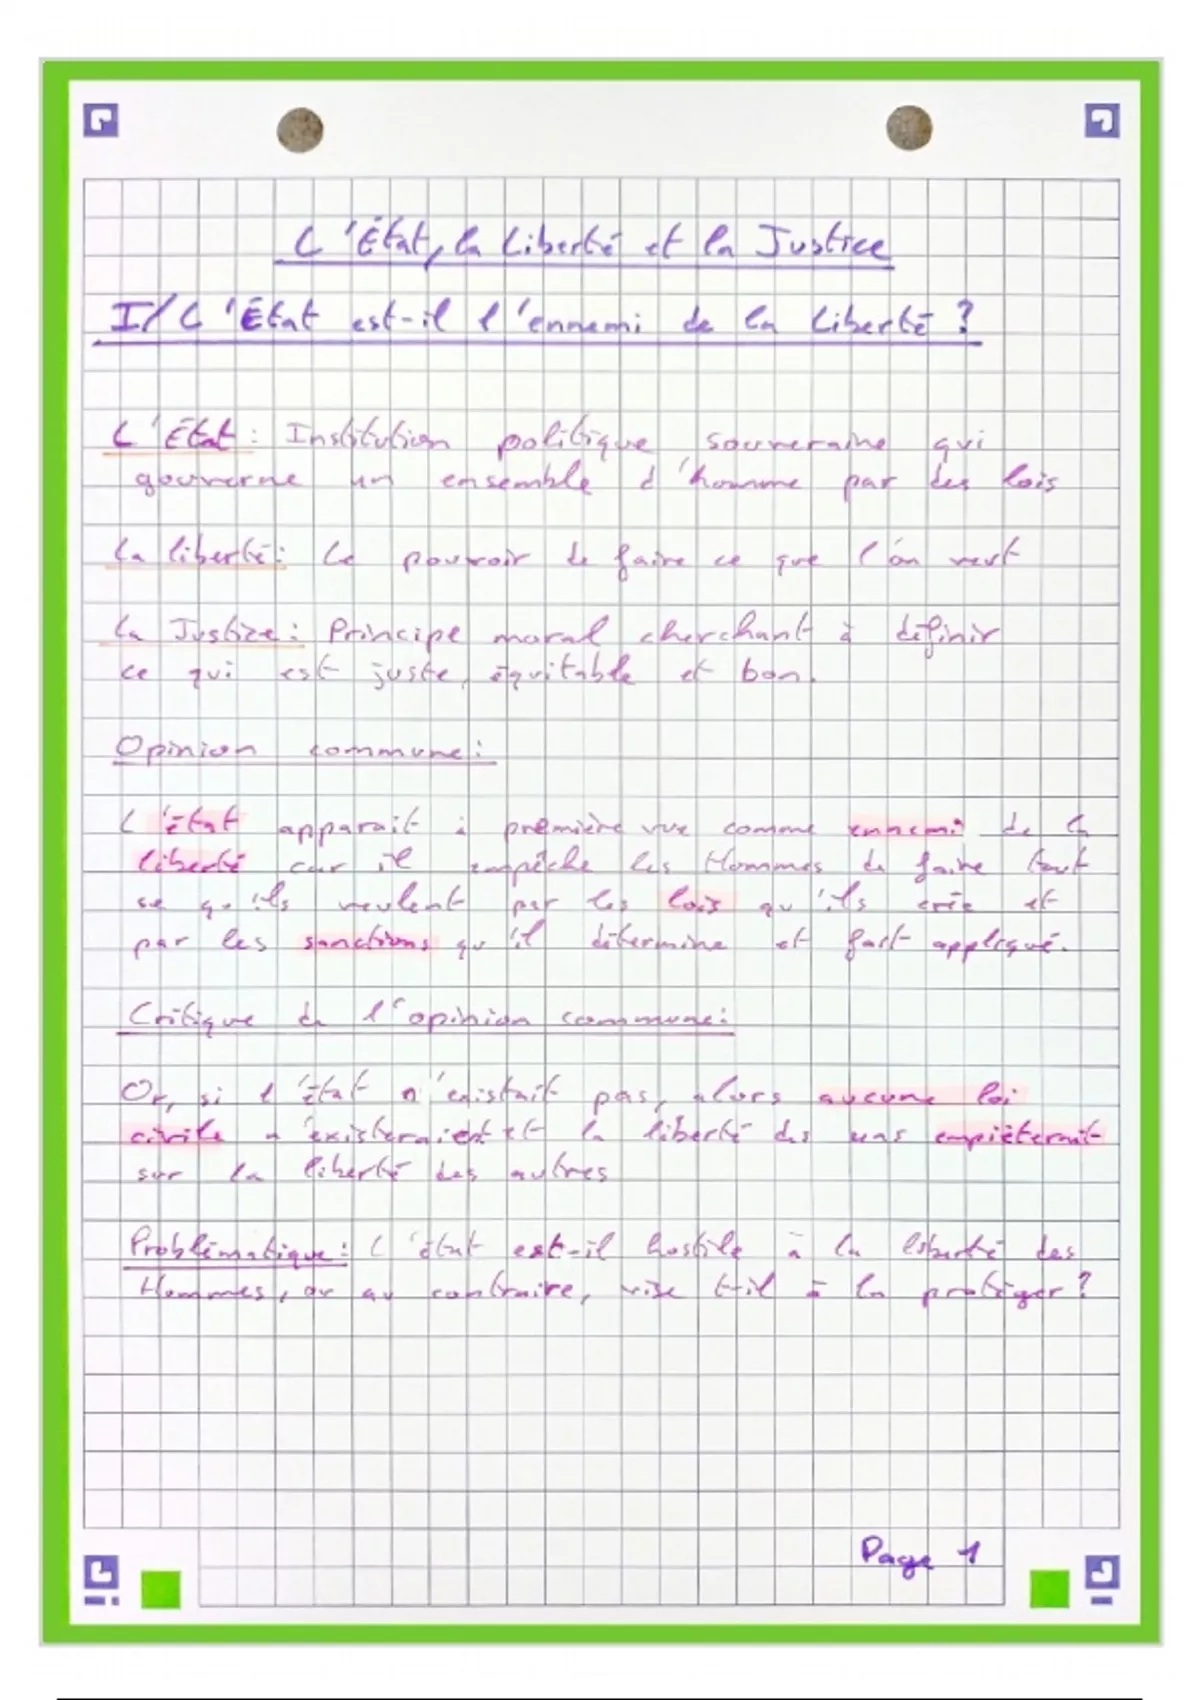 L'État, la Liberté et la Justice
I/ L'État est-il l'ennemi de la Liberté ?
L'État : Institution politique souveraine qui
gouverne un ensemble d'homme par des lois
La liberté : Le pouvoir de faire ce que l'on veut
La Justice : Principe moral cherchant à définir
ce qui est juste, équitable et bon.
Opinion commune :
L'état apparait à première vue comme ennemi de la
liberté car il empêche les Hommes de faire tout
se qu'ils veulent par les lois qu'ils crée et
par les sanctions qu'il détermine et fait appliqué.
Critique de l'opinion commune :
Or, si l'état n'existait pas, alors aucune loi
civile n'existeraient et la liberté des uns empièterait
sur la liberté des autres
Problématique : L'état est-il hostile à la liberté des
Hommes, ou au contraire, vise t-il à la protéger ?
Page 1